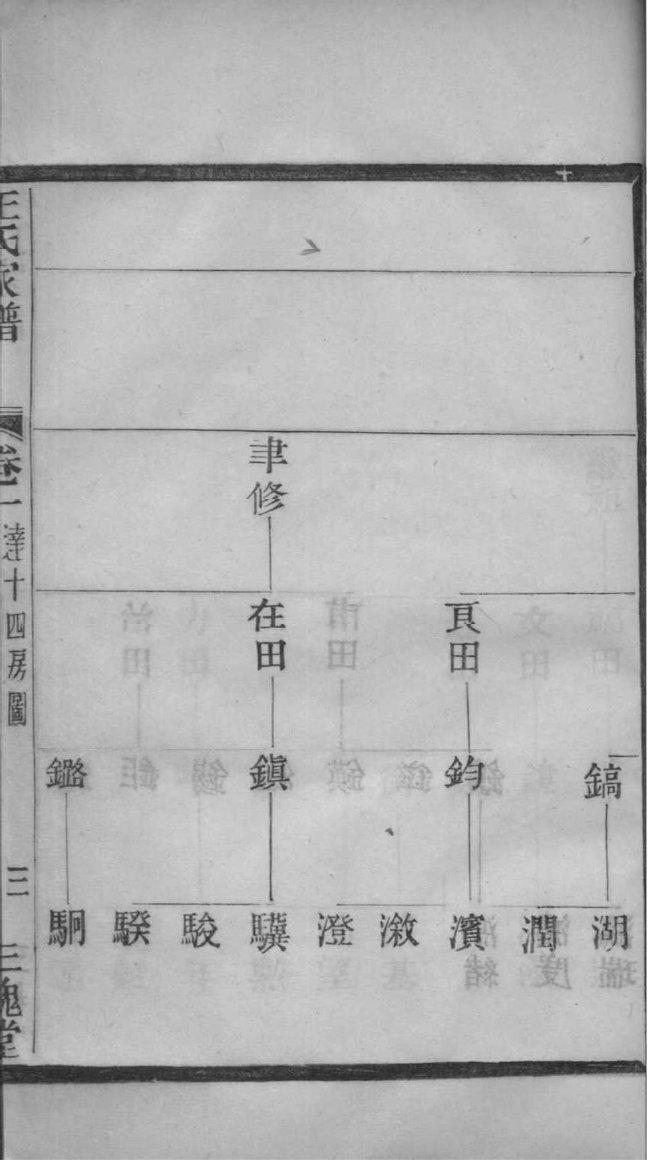 聿修
亰田 在田
鎬 鈞 鎮 鑑
湖 潤 濱 漵 澄 驥 駿 騤 駉
王氏家譜
卷一 達十四房圖
三
三槐堂